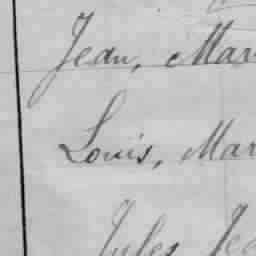 Jean, Mar
Louis, Mar
Jules Jea